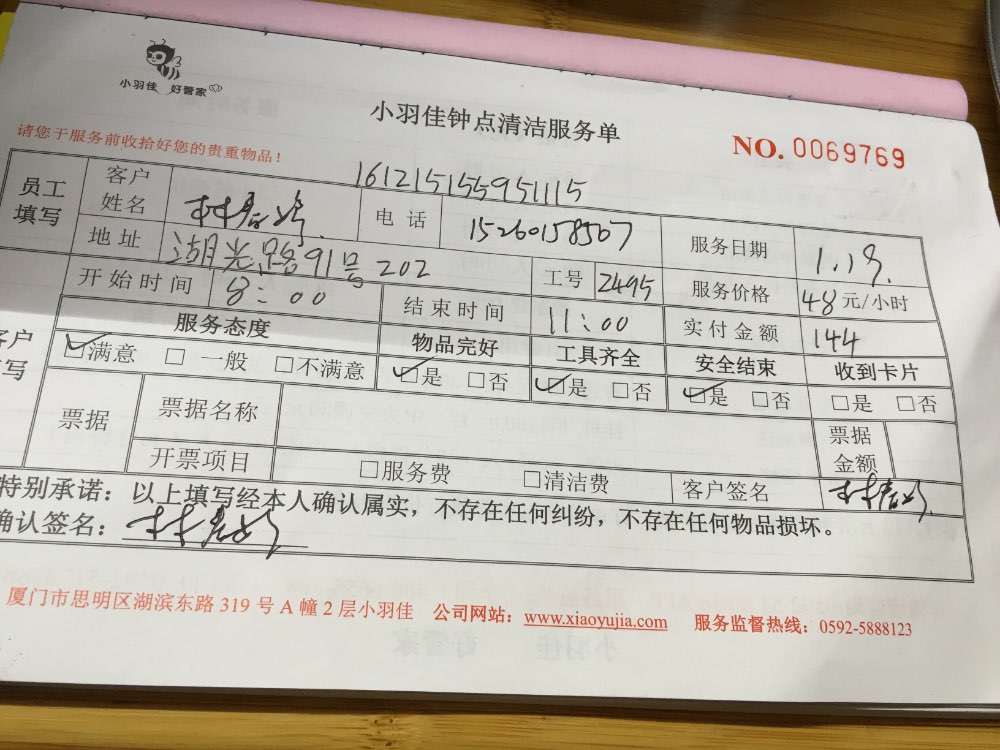 小羽佳 好管家
小羽佳钟点清洁服务单
请您于服务前收拾好您的贵重物品！
NO. 0069769
161215155951115
员工填写 客户姓名 林 电话 15260158507 服务日期 1.18.
地址 湖光路91号202 工号 2495 服务价格 48元/小时
开始时间 8：00 结束时间 11：00 实付金额 144
服务态度 物品完好 工具齐全 安全结束 收到卡片
客户填写 ☑满意 □一般 □不满意 ☑是 □否 ☑是 □否 ☑是 □否 □是 □否
票据 票据名称 票据金额
开票项目 □服务费 □清洁费 客户签名 林
特别承诺：以上填写经本人确认属实，不存在任何纠纷，不存在任何物品损坏。
确认签名：林
厦门市思明区湖滨东路 319 号 A 幢 2 层小羽佳 公司网站：www.xiaoyujia.com 服务监督热线：0592-5888123